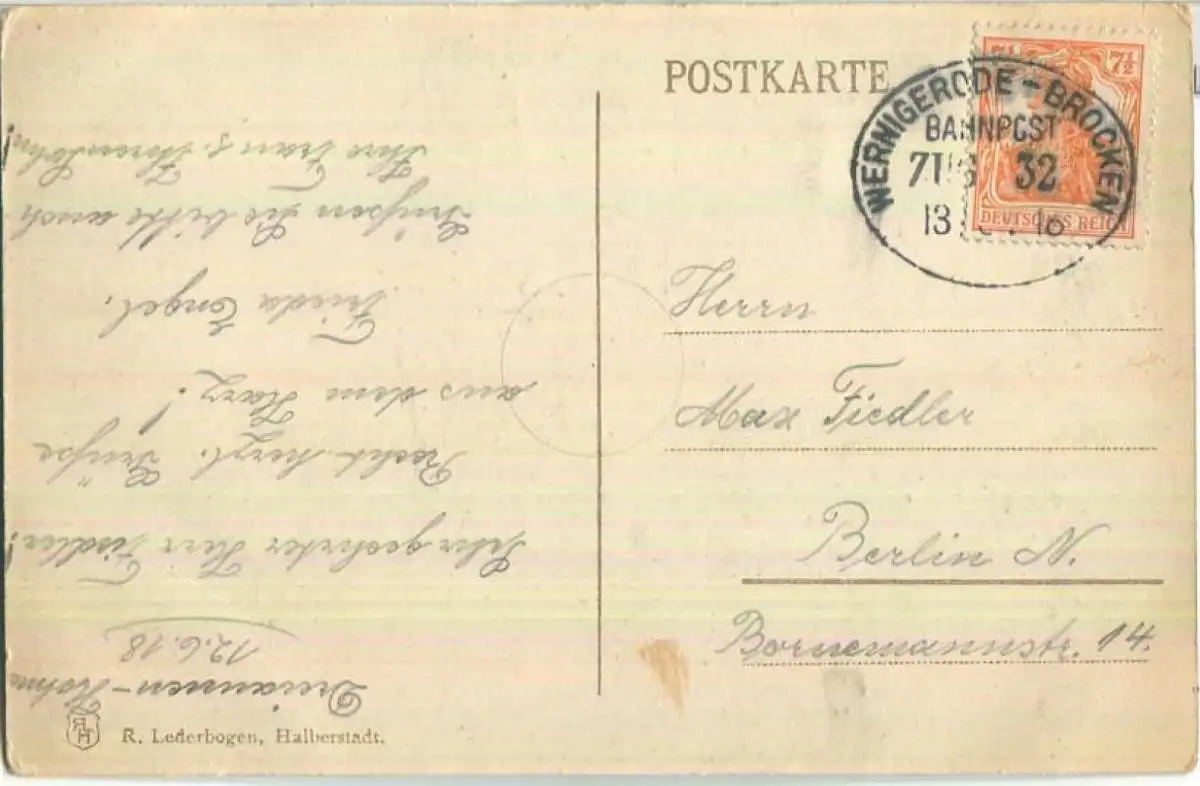 POSTKARTE
WERNIGERODE - BROCKEN
BAHNPOST
ZUG 32
13 18
7½ 7½
DEUTSCHES REICH
Herrn
Max Fiedler
Berlin N.
Bornemannstr. 14.
Dreiannen-Hohne
12.6.18
Sehr geehrter Herr Fiedler!
Recht herzl. Grüße
aus dem Harz!
Frieda Engel.
Grüßen Sie bitte auch
Ihre Frau
R. Lederbogen, Halberstadt.